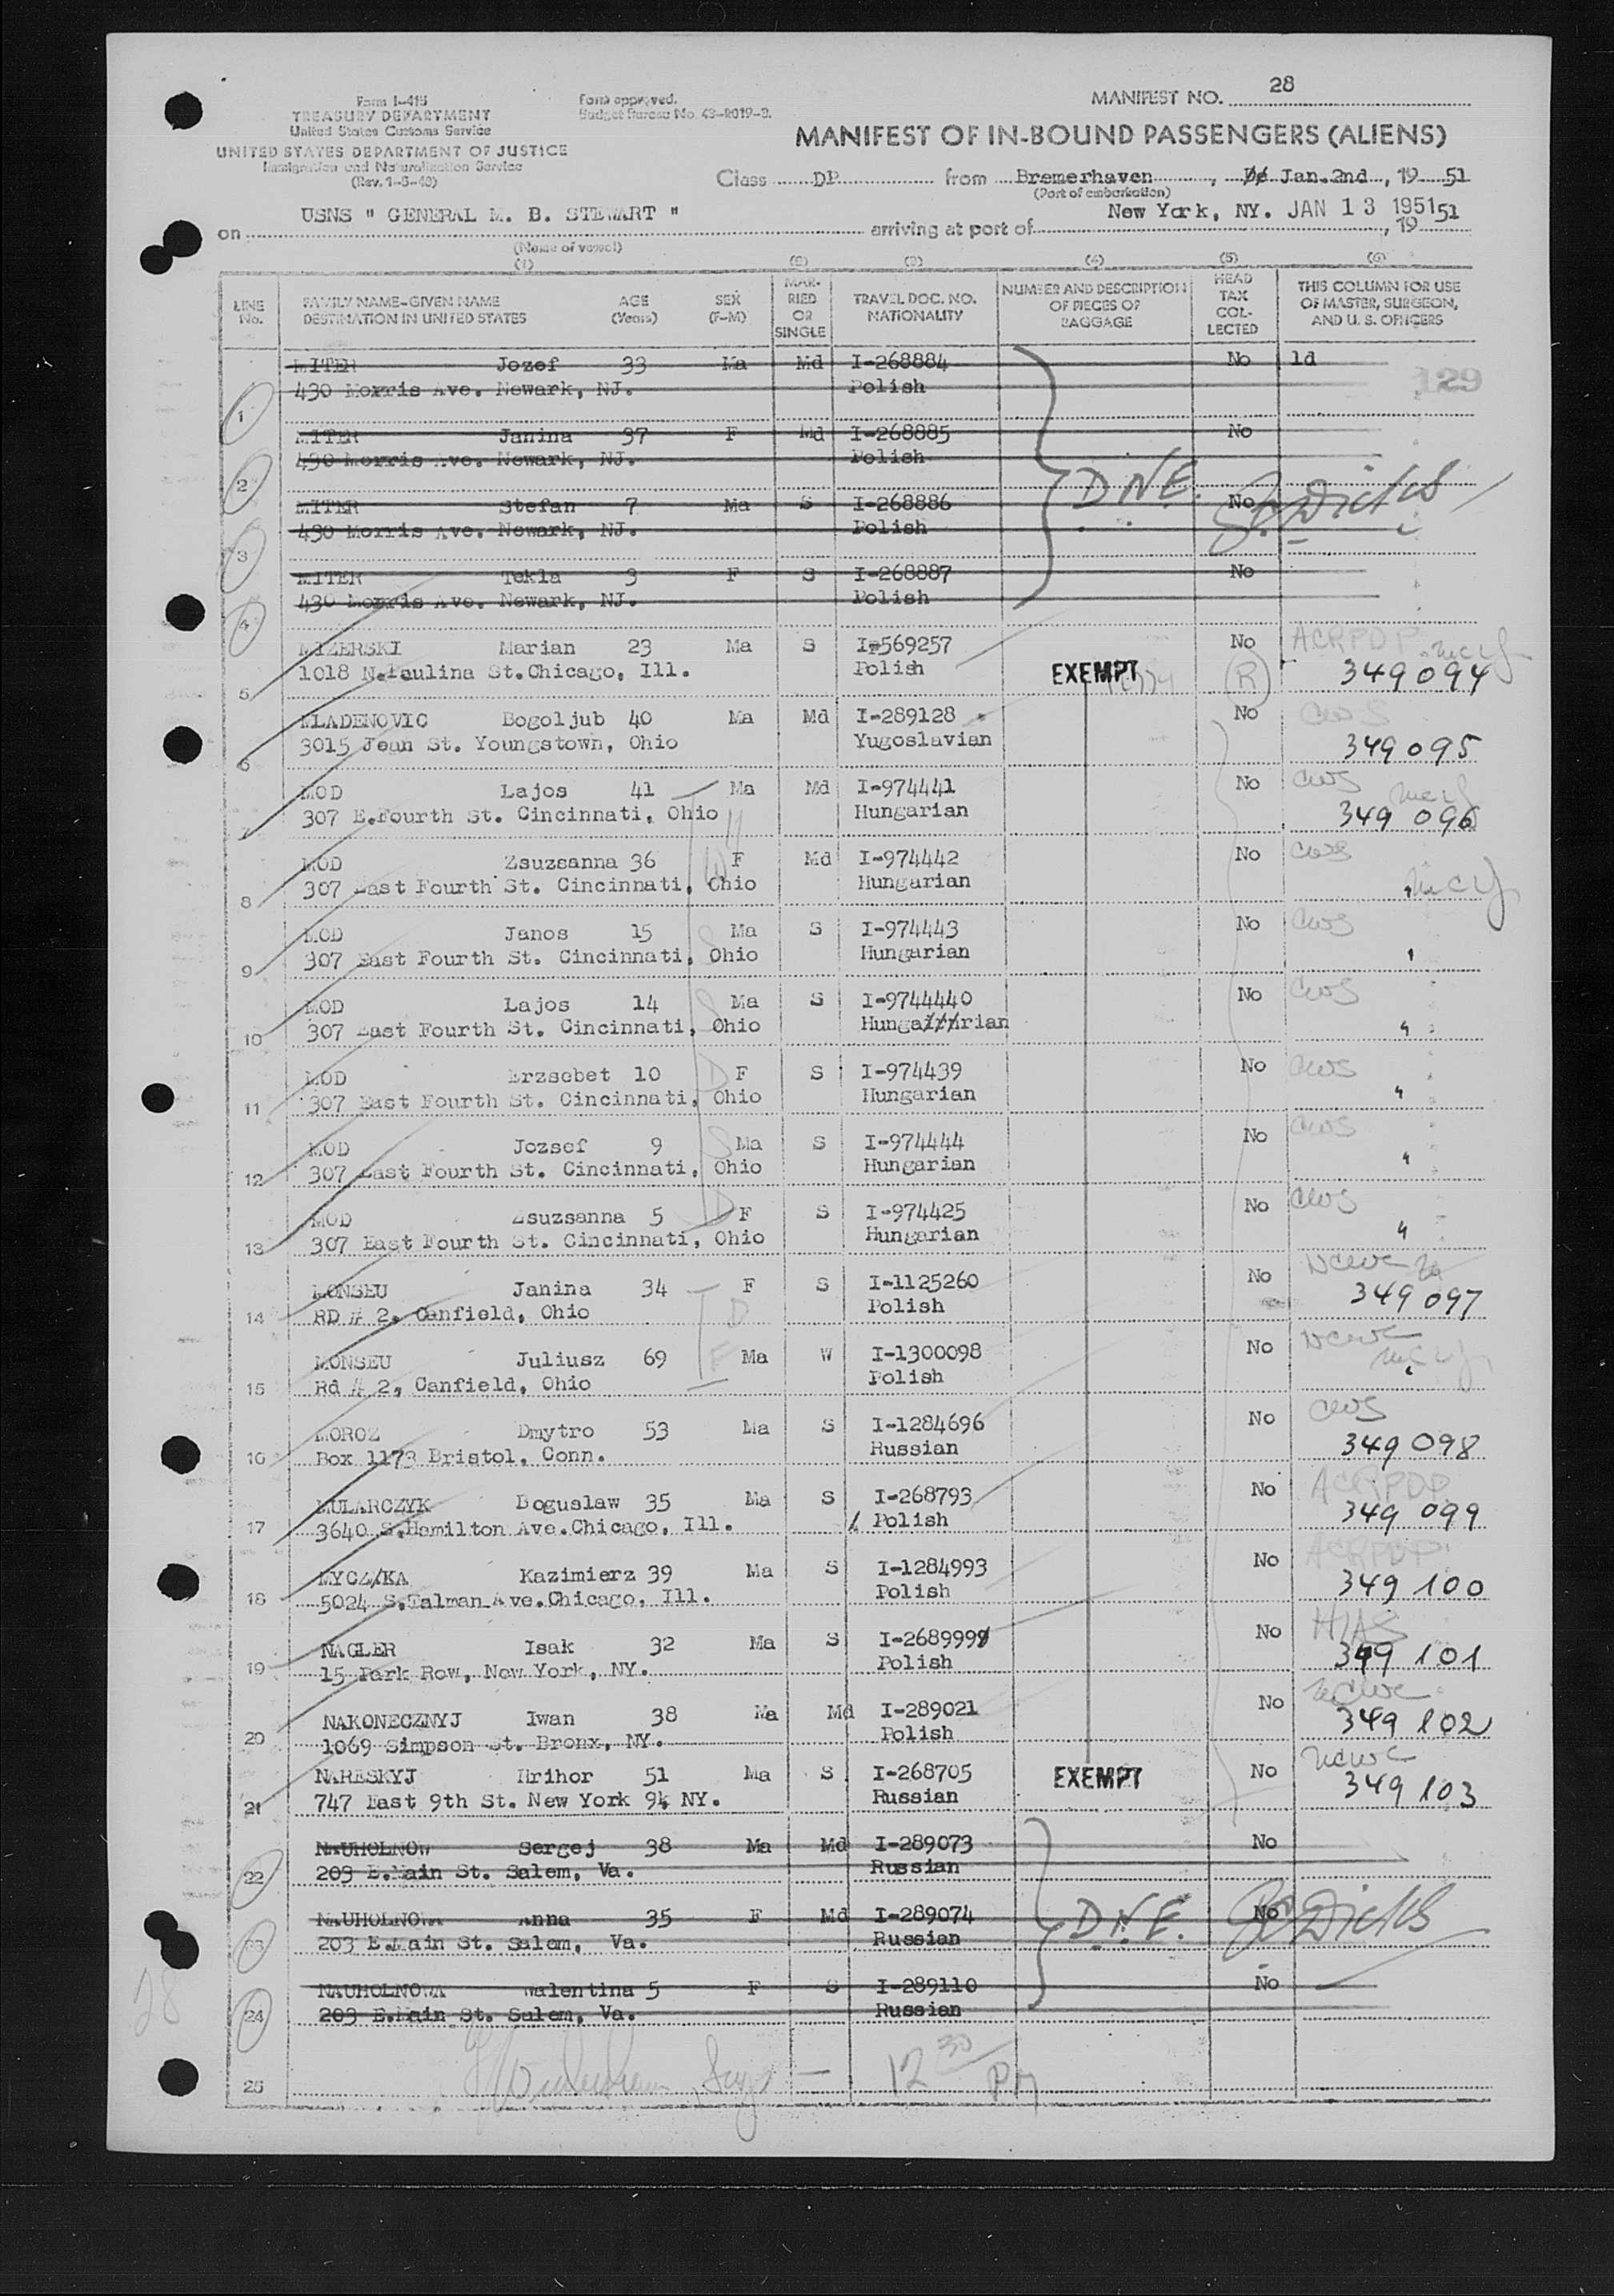 Form I-415
TREASURY DEPARTMENT
United States Customs Service
UNITED STATES DEPARTMENT OF JUSTICE
Immigration and Naturalization Service
(Rev. 1-5-49)
Form approved.
Budget Bureau No. 43-R019-3.
MANIFEST NO. 28
MANIFEST OF IN-BOUND PASSENGERS (ALIENS)
Class DP from Bremerhaven, Jan.2nd, 19 51
(Port of embarkation)
on USNS " GENERAL M. B. STEWART " arriving at port of New York, NY. JAN 13 1951, 19 51
(Name of vessel)
(1) (2) (3) (4) (5) (6)
LINE No. FAMILY NAME-GIVEN NAME DESTINATION IN UNITED STATES AGE (Years) SEX (F-M) MARRIED OR SINGLE TRAVEL DOC. NO. NATIONALITY NUMBER AND DESCRIPTION OF PIECES OF BAGGAGE HEAD TAX COLLECTED THIS COLUMN FOR USE OF MASTER, SURGEON, AND U. S. OFFICERS
MITER Jozef 33 Ma Md I-268884 No ld
1 430 Morris Ave. Newark, NJ. Polish 129
MITER Janina 37 F Md I-268885 No
2 430 Morris Ave. Newark, NJ. Polish D.N.E.
MITER Stefan 7 Ma S I-268886 No
3 430 Morris Ave. Newark, NJ. Polish
MITER Tekla 3 F S I-268887 No
4 430 Morris Ave. Newark, NJ. Polish
MIZERSKI Marian 23 Ma S I-569257 No ACRPDP
5 1018 N.Paulina St.Chicago, Ill. Polish EXEMPT R 349094
MLADENOVIC Bogoljub 40 Ma Md I-289128 No CWS
6 3015 Jean St. Youngstown, Ohio Yugoslavian 349095
MOD Lajos 41 Ma Md I-974441 No CWS
7 307 E.Fourth St. Cincinnati, Ohio Hungarian 349 096
MOD Zsuzsanna 36 F Md I-974442 No CWS
8 307 East Fourth St. Cincinnati, Ohio Hungarian "
MOD Janos 15 Ma S I-974443 No CWS
9 307 East Fourth St. Cincinnati, Ohio Hungarian "
MOD Lajos 14 Ma S I-9744440 No CWS
10 307 East Fourth St. Cincinnati, Ohio Hungarian "
MOD Erzsebet 10 F S I-974439 No CWS
11 307 East Fourth St. Cincinnati, Ohio Hungarian "
MOD Jozsef 9 Ma S I-974444 No CWS
12 307 East Fourth St. Cincinnati, Ohio Hungarian "
MOD Zsuzsanna 5 F S I-974425 No CWS
13 307 East Fourth St. Cincinnati, Ohio Hungarian "
MONSEU Janina 34 F S I-1125260 No NCWC
14 RD # 2, Canfield, Ohio Polish 349 097
MONSEU Juliusz 69 Ma W I-1300098 No NCWC
15 Rd # 2, Canfield, Ohio Polish "
MOROZ Dmytro 53 Ma S I-1284696 No CWS
16 Box 1173 Bristol, Conn. Russian 349 098
MULARCZYK Boguslaw 35 Ma S I-268793 No ACRPDP
17 3640 S.Hamilton Ave.Chicago, Ill. Polish 349 099
MYCZ/KA Kazimierz 39 Ma S I-1284993 No ACRPDP
18 5024 S.Talman Ave.Chicago, Ill. Polish 349 100
NAGLER Isak 32 Ma S I-268999 No HIAS
19 15 Park Row, New York, NY. Polish 349 101
NAKONECZNYJ Iwan 38 Ma Md I-289021 No NCWC
20 1069 Simpson St. Bronx, NY. Polish 349 102
NARESKYJ Hrihor 51 Ma S I-268705 EXEMPT No NCWC
21 747 East 9th St. New York 94 NY. Russian 349 103
NAUHOLNOW Sergej 38 Ma Md I-289073 No
22 203 E.Main St. Salem, Va. Russian
NAUHOLNOWA Anna 35 F Md I-289074 D.N.E. No
23 203 E.Main St. Salem, Va. Russian
NAUHOLNOWA Walentina 5 F S I-289110 No
24 203 E.Main St. Salem, Va. Russian
28
25 12 30 PM